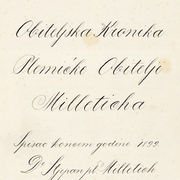 Obiteljska Kronika
Plemićke Obitelji
Milleticha
Spisao koncem godine 1899
Dr Stjepan pl. Milletich